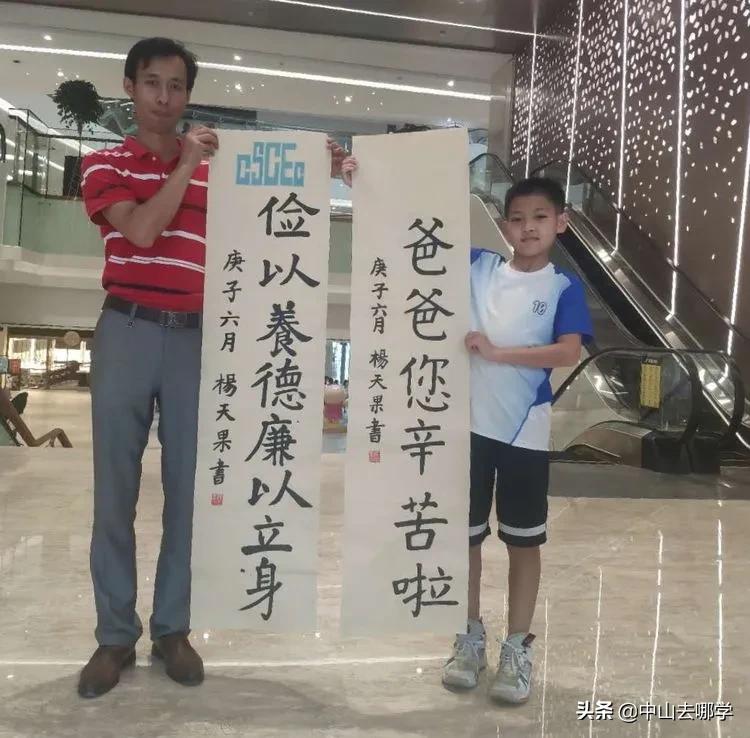 CSCEC
俭以養德廉以立身
庚子六月 楊天果書
爸爸您辛苦啦
庚子六月 楊天果書
18
头条 @中山去哪学